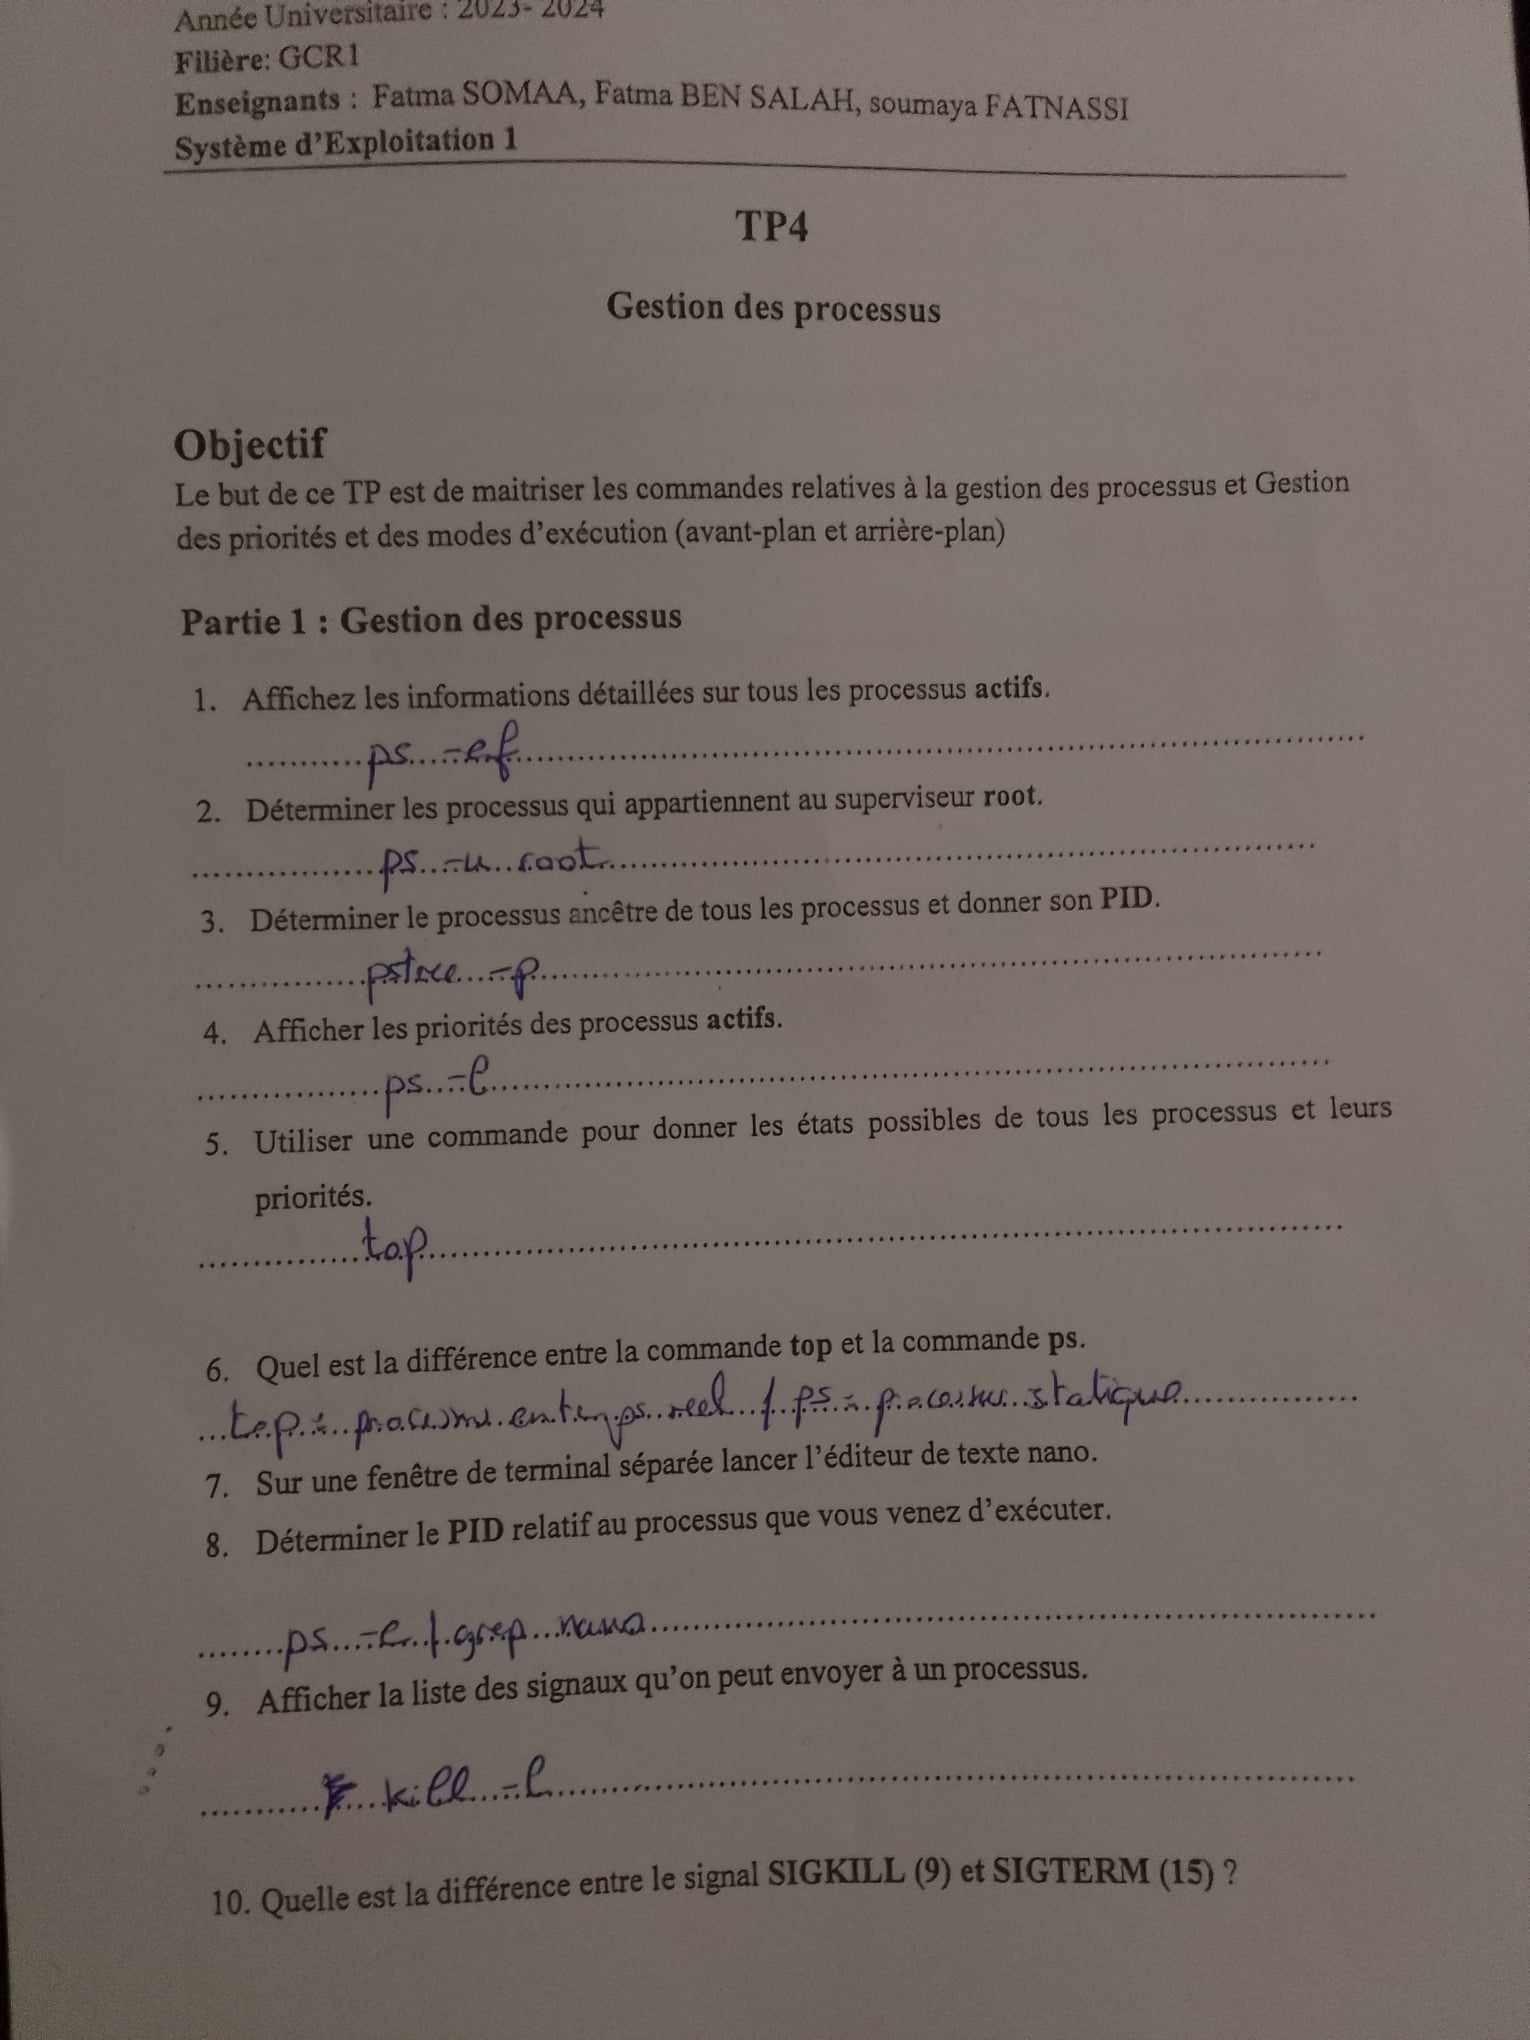 Année Universitaire : 2023- 2024
Filière: GCR1
Enseignants : Fatma SOMAA, Fatma BEN SALAH, soumaya FATNASSI
Système d'Exploitation 1
TP4
Gestion des processus
Objectif
Le but de ce TP est de maitriser les commandes relatives à la gestion des processus et Gestion
des priorités et des modes d'exécution (avant-plan et arrière-plan)
Partie 1 : Gestion des processus
1. Affichez les informations détaillées sur tous les processus actifs.
ps -ef
2. Déterminer les processus qui appartiennent au superviseur root.
ps -u root
3. Déterminer le processus ancêtre de tous les processus et donner son PID.
pstree -p
4. Afficher les priorités des processus actifs.
ps -l
5. Utiliser une commande pour donner les états possibles de tous les processus et leurs
priorités.
top
6. Quel est la différence entre la commande top et la commande ps.
top : processus en temps reel / ps : processus statique
7. Sur une fenêtre de terminal séparée lancer l'éditeur de texte nano.
8. Déterminer le PID relatif au processus que vous venez d'exécuter.
ps -e | grep nano
9. Afficher la liste des signaux qu'on peut envoyer à un processus.
kill -l
10. Quelle est la différence entre le signal SIGKILL (9) et SIGTERM (15) ?